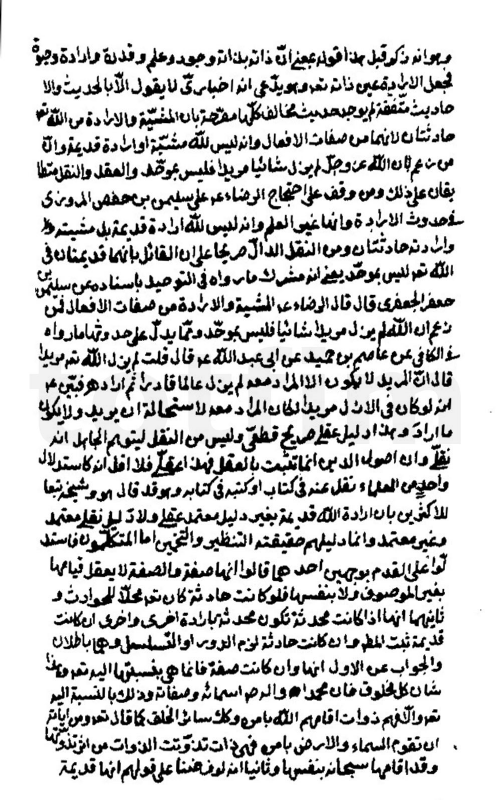 وهو انه ذكر قبل هذا قوله يعني ان ذاته بذاته وجود وعلم وقدرة وارادة وحيوة
فجعل الارادة عين ذاته تعه وهو يدعي انه اخباري لا يقول الا بالحديث والا
حاديث متفقة لم يوجد حديث مخالف كلها مصرحة بان المشيّة والارادة من الله تعه
حادثتان لانهما من صفات الافعال وانه ليس لله مشيّة او ارادة قديمة وان
من زعم بان الله عز وجل لم يزل شائيا مريدا فليس بموحد والعقل والنقل متطا
بقان على ذلك ومن وقف على احتجاج الرضاء عه على سليمن بن حفص المروزي
في حدوث الارادة وانها غير العلم وانه ليس لله ارادة قديمة بل مشيته
وارادته حادثتان ومن النقل الدال صريحا على ان القائل بانهما قديمتان في
الله تعه ليس بموحد يعني انه مشرك ما رواه في التوحيد باسناده عن سليمن بن
جعفر الجعفري قال قال الرضاء عه المشية والارادة من صفات الافعال فمن
زعم ان الله لم يزل مريدا شائيا فليس بموحد ومما يدل على حدوثهما ما رواه
في الكافي عن عاصم بن حميد عن ابي عبد الله عه قال قلت لم يزل الله تعه مريدا
قال ان المريد لا يكون الا المراد معه لم يزل عالما قادرا ثم اراد فبين عه
انه لو كان في الازل مريدا لكان المراد معه لاستحالة ان يريد ولا يكون
ما اراد وهذا دليل عقلي صريح قطعي وليس من النقل ليتوهم الجاهل انه
نقلي وان اصول الدين انما تثبت بالعقل فهذا عقلي فلا اقل انه كاستدلال
واحد من العلماء نقل عنه في كتاب او كتبه في كتابه وهو قد قال هو وشيخه تبعا
للاكثرين بان ارادة الله قديمة بغير دليل معتمد عقلي ولا دليل نقلي معتمد
وغير معتمد وانما دليلهم حقيقته التنظير والتخمين اما المتكلمون فاستد
لوا على القدم بوجهين احدهما قالوا انها صفة والصفة لا يعقل قيامها
بغير الموصوف ولا بنفسها فلو كانت حادثة كان تعه محلا للحوادث و
ثانيهما انها اذا كانت محدثة تكون محدثة بارادة اخرى واخرى ان كانت
قديمة ثبت المط وان كانت حادثة لزم الدور او التسلسل وهما باطلان
والجواب عن الاول انها وان كانت صفة فانما هي بنسبتها اليه تعه وهذا
شان كل مخلوق فان محمدا واله ص اسمائه وصفاته وذلك بالنسبة اليه
تعه والا فهم ذوات اقامهم الله بامره وكك سائر الخلق كما قال تعه ومن اياته
ان تقوم السماء والارض بامره فهي ذات تذوتت الذوات من
وقد اقامها سبحانه بنفسها وثانيا انه لو فرضنا على قولهم انها قديمة